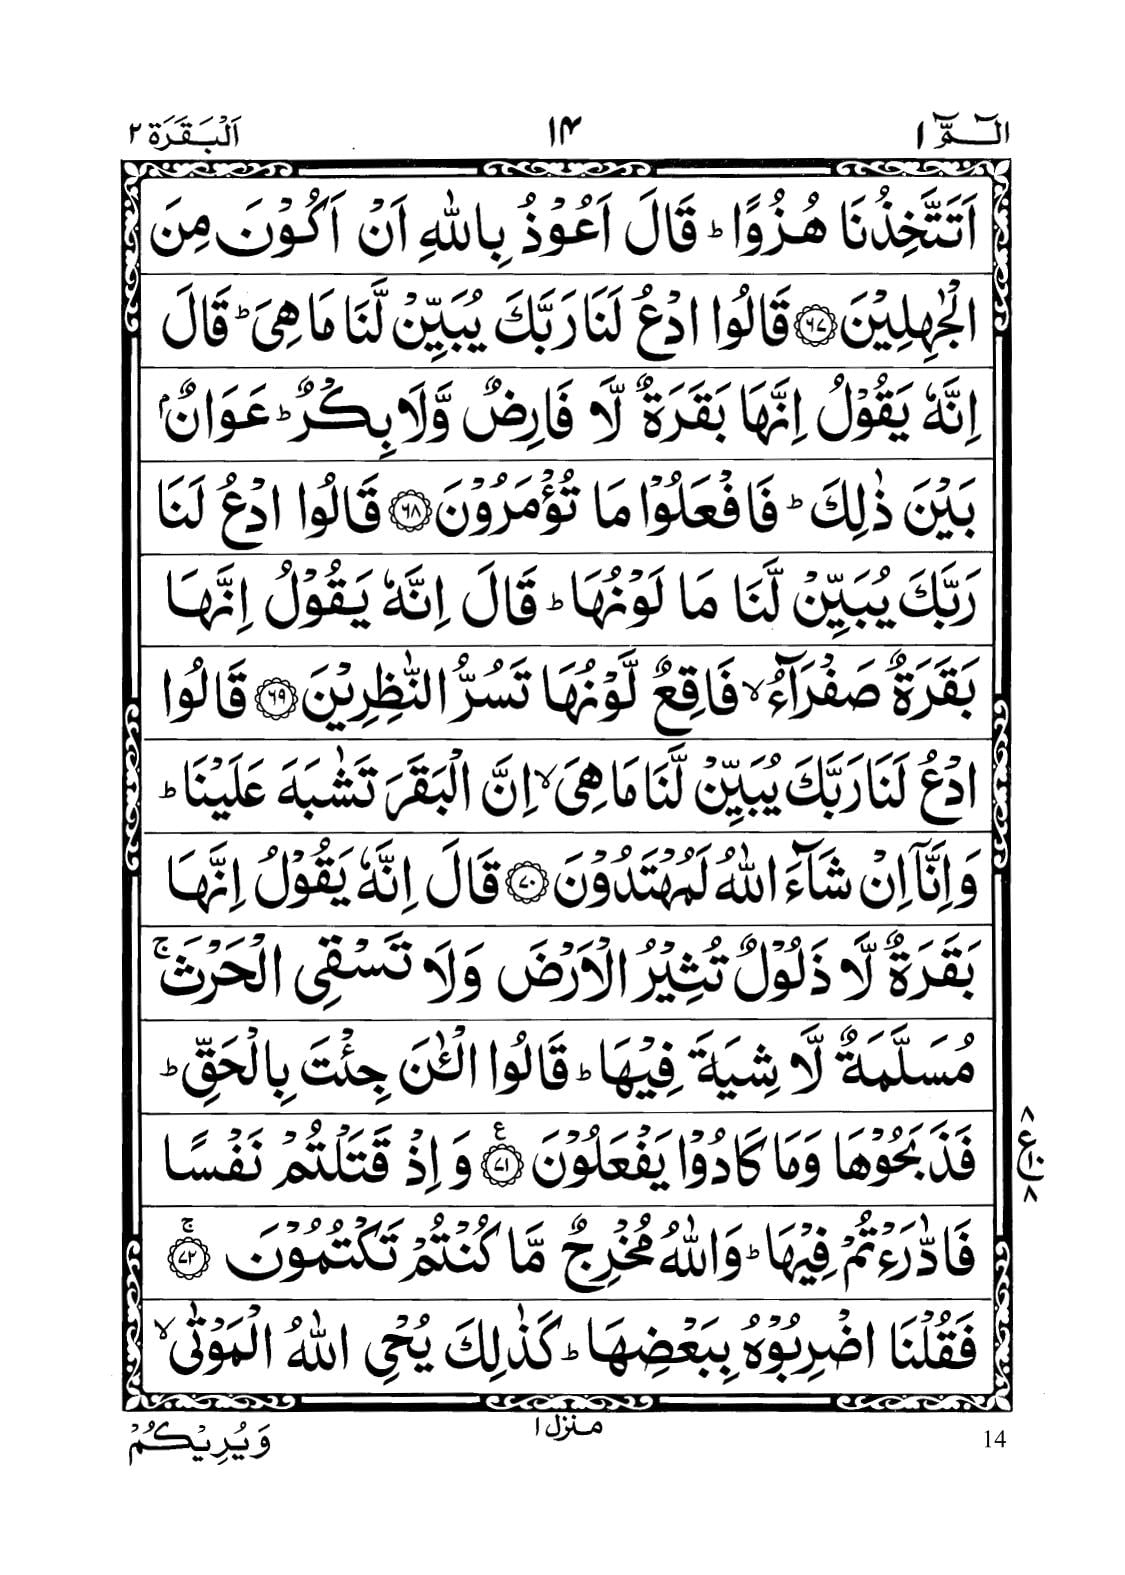 الٓمّٓ ١
١٤
اَلْبَقَرَة ٢
اَتَتَّخِذُنَا هُزُوًا ؕ قَالَ اَعُوْذُ بِاللّٰهِ اَنْ اَكُوْنَ مِنَ
الْجٰهِلِيْنَ ﴿۶۷﴾ قَالُوا ادْعُ لَنَا رَبَّكَ يُبَيِّنْ لَّنَا مَا هِىَ ؕ قَالَ
اِنَّهٗ يَقُوْلُ اِنَّهَا بَقَرَةٌ لَّا فَارِضٌ وَّلَا بِكْرٌ ؕ عَوَانٌۢ
بَيْنَ ذٰلِكَ ؕ فَافْعَلُوْا مَا تُؤْمَرُوْنَ ﴿۶۸﴾ قَالُوا ادْعُ لَنَا
رَبَّكَ يُبَيِّنْ لَّنَا مَا لَوْنُهَا ؕ قَالَ اِنَّهٗ يَقُوْلُ اِنَّهَا
بَقَرَةٌ صَفْرَآءُ ۙ فَاقِعٌ لَّوْنُهَا تَسُرُّ النّٰظِرِيْنَ ﴿۶۹﴾ قَالُوا
ادْعُ لَنَا رَبَّكَ يُبَيِّنْ لَّنَا مَا هِىَ ۙ اِنَّ الْبَقَرَ تَشٰبَهَ عَلَيْنَا ؕ
وَاِنَّآ اِنْ شَآءَ اللّٰهُ لَمُهْتَدُوْنَ ﴿۷۰﴾ قَالَ اِنَّهٗ يَقُوْلُ اِنَّهَا
بَقَرَةٌ لَّا ذَلُوْلٌ تُثِيْرُ الْاَرْضَ وَلَا تَسْقِى الْحَرْثَ ۚ
مُسَلَّمَةٌ لَّا شِيَةَ فِيْهَا ؕ قَالُوا الْـٰٔنَ جِئْتَ بِالْحَقِّ ؕ
فَذَبَحُوْهَا وَمَا كَادُوْا يَفْعَلُوْنَ ﴿۷۱﴾ ع وَاِذْ قَتَلْتُمْ نَفْسًا
۸ ع ۱۰ ۸
فَادّٰرَءْتُمْ فِيْهَا ؕ وَاللّٰهُ مُخْرِجٌ مَّا كُنْتُمْ تَكْتُمُوْنَ ۚ ﴿۷۲﴾
فَقُلْنَا اضْرِبُوْهُ بِبَعْضِهَا ؕ كَذٰلِكَ يُحْىِ اللّٰهُ الْمَوْتٰى ۙ
14
منزل ١
وَيُرِيْكُمْ